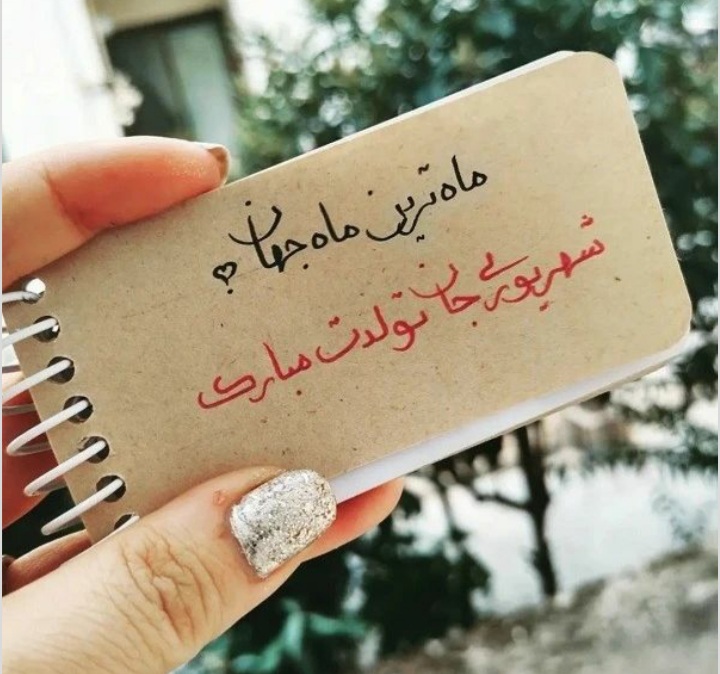 ماه‌ترین ماه جهان
شهریوری جان تولدت مبارک